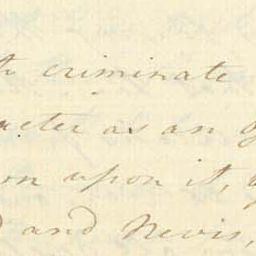 criminate
acter as an
on upon it,
and Nevis,